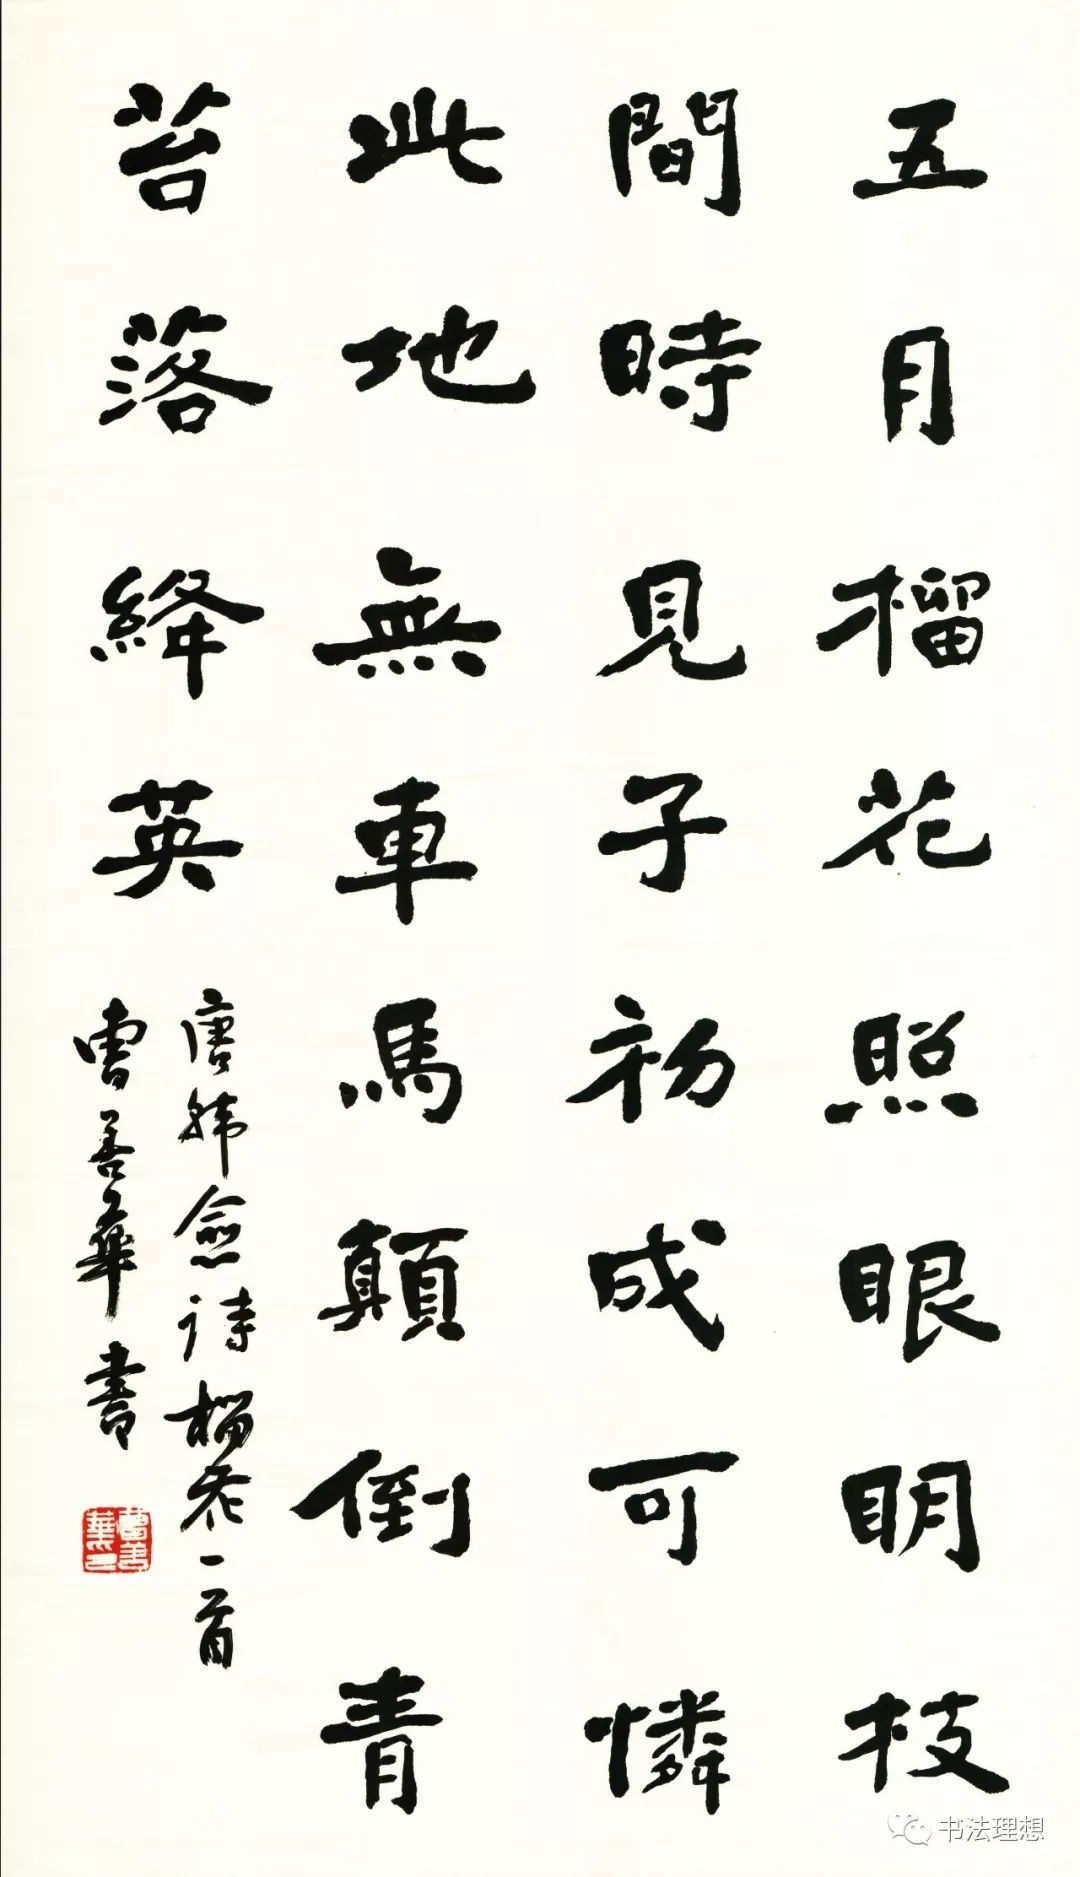 五月榴花照眼明枝
間時見子初成可憐
此地無車馬顛倒青
苔落絳英
唐韩愈诗榴花一首
曹善華書
曹善華印
书法理想